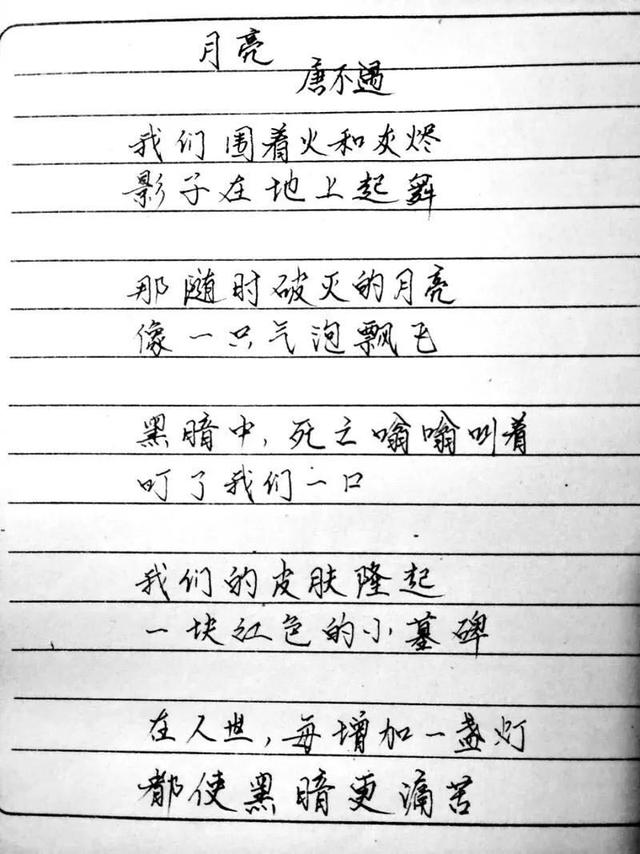 月亮
唐不遇
我们围着火和灰烬
影子在地上起舞
那随时破灭的月亮
像一只气泡飘飞
黑暗中,死亡嗡嗡叫着
叮了我们一口
我们的皮肤隆起
一块红色的小墓碑
在人世,每增加一盏灯
都使黑暗更痛苦